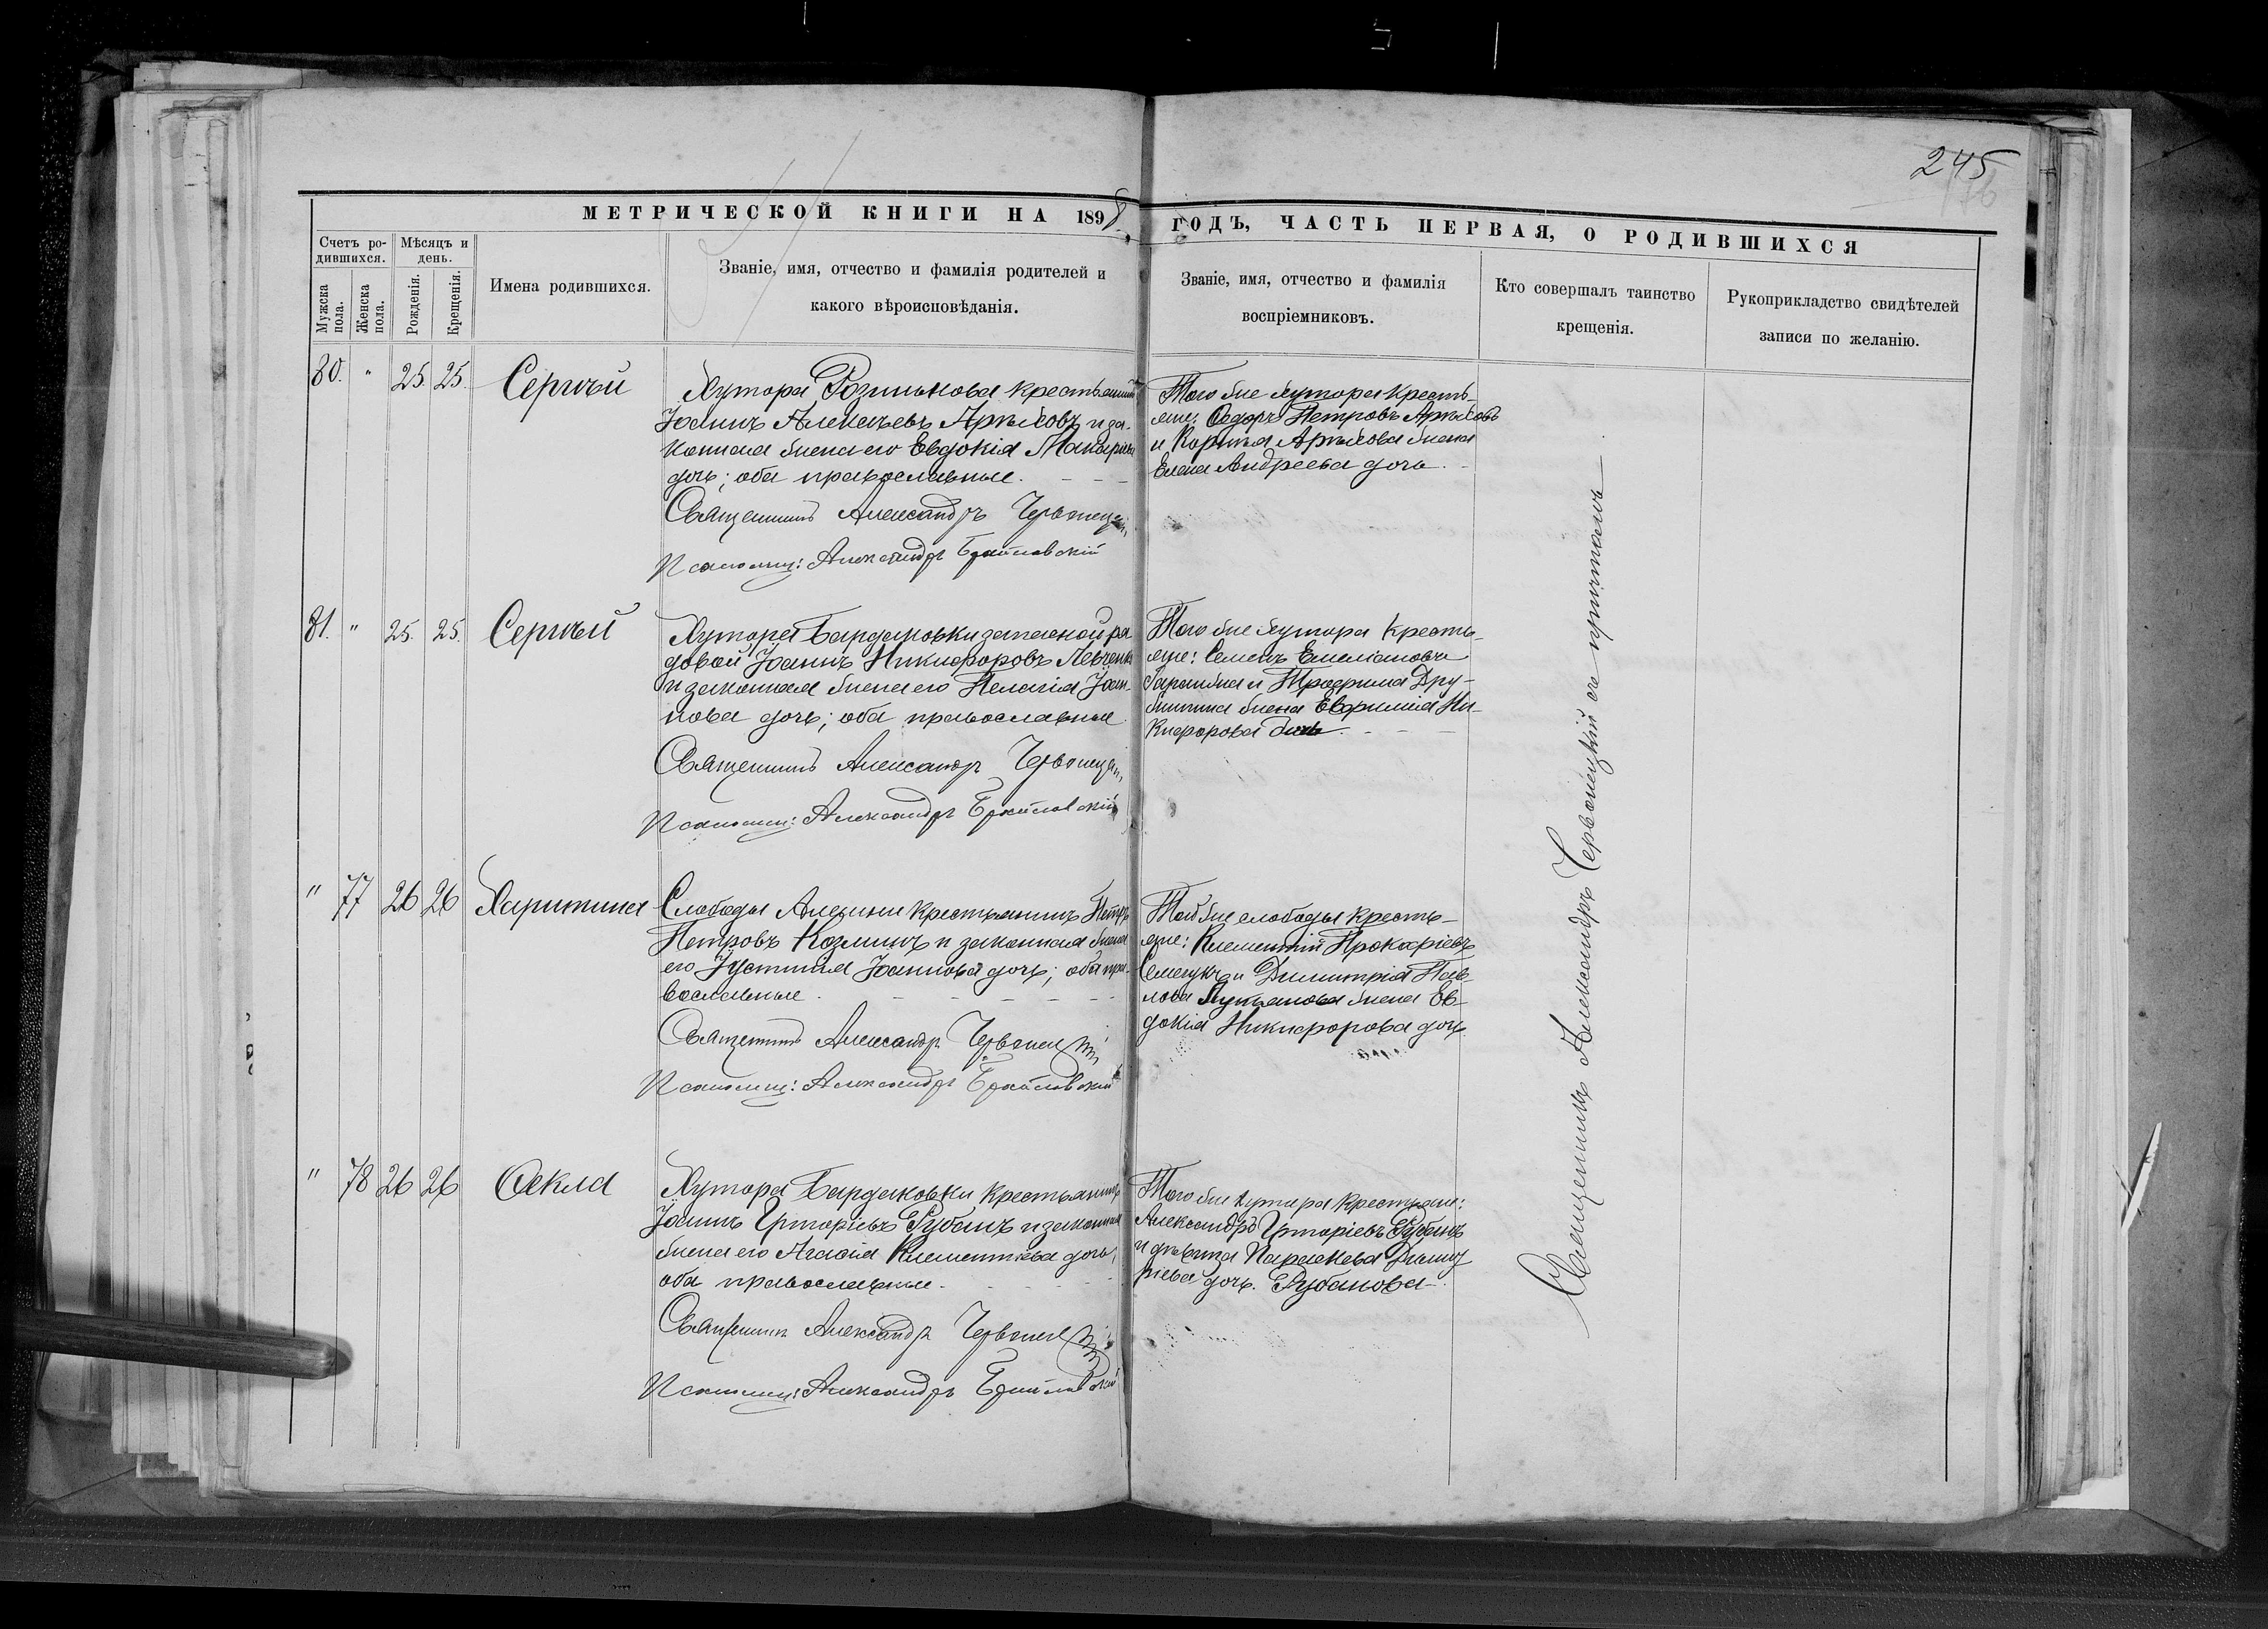 245
МЕТРИЧЕСКОЙ КНИГИ НА 1898 ГОДЪ, ЧАСТЬ ПЕРВАЯ, О РОДИВШИХСЯ
Счетъ ро-
дившихся.
Мужска пола.
Женска пола.
Мѣсяцъ и
день.
Рожденія.
Крещенія.
Имена родившихся.
Званіе, имя, отчество и фамилія родителей и
какого вѣроисповѣданія.
Званіе, имя, отчество и фамилія
воспріемниковъ.
Кто совершалъ таинство
крещенія.
Рукоприкладство свидѣтелей
записи по желанію.
80. " 25. 25. Сергѣй
Хутора крестьянинъ
Іоаннъ Алексѣевъ и за-
конная жена его Евдокія Макаріева
дочь; оба православные.
Священникъ Александръ Червонецкій
Псаломщ: Александръ Браиловскій
Того же хутора кресть-
яне: Ѳедоръ Петровъ
и жена
Елена Андреева дочь.
81. " 25. 25. Сергѣй
Хутора Бардаковки запасной ря-
довой Іоаннъ Никифоровъ Левченко
и законная жена его Пелагія Іоан-
нова дочь; оба православные
Священникъ Александръ Червонецкій
Псаломщ: Александръ Браиловскій
Того же хутора кресть-
яне: Семенъ Емеліановъ
Гаражка и Трофима Дру-
жинина жена Евфимія Ни-
кифорова дочь.
" 77 26 26 Харитина
Слободы крестьянинъ Петръ
Петровъ Козминъ и законная жена
его Іустинія Іоаннова дочь; оба пра-
вославные.
Священникъ Александръ Червонецкій
Псаломщ: Александръ Браиловскій
Той же слободы кресть-
яне: Климентій Прокофіевъ
и Димитрія Пав-
лова Лукьянова жена Ев-
докія Никифорова дочь.
" 78 26 26 Ѳекла
Хутора Бардаковки крестьянинъ
Іоаннъ Григоріевъ Рубанъ и законная
жена его Агафія Климентіева дочь;
оба православные.
Священникъ Александръ Червонецкій
Псаломщ: Александръ Браиловскій
Того же хутора крестьяне:
Александръ Григоріевъ Рубанъ
и дѣвица Параскева Димит-
ріева дочь Рубанова.
Священникъ Александръ Червонецкій съ причтомъ